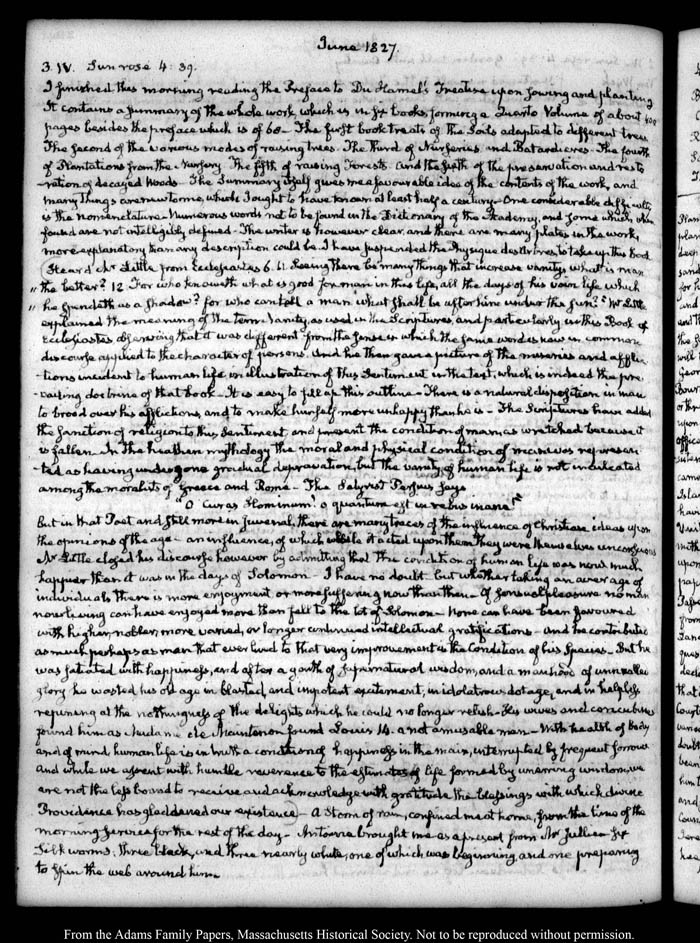 June 1827.
3. IV. Sun rose 4:39.
I finished this morning reading the Preface to Du Hamel's Treatise upon sowing and planting
It contains a summary of the whole work, which is in six books, forming a Quarto Volume of about 400
pages besides the preface which is of 60— The first book treats of the Soils adapted to different trees
The second of the various modes of raising trees. The third of Nurseries and Batardieres— The fourth
of Plantations from the Nursery. The fifth of raising Forests and the sixth of the preservation and resto
-ration of decayed Woods— The Summary itself gives me a favourable idea of the contents of the work, and
many things are new to me, which I ought to have known at least half a century— One considerable difficulty
is the nomenclature— Numerous words not to be found in the Dictionary of the Academy, and some which, when
found are not intelligibly defined— The writer is however clear, and there are many plates in the work,
more explanatory than any description could be. I have suspended the Physique des Arbres, to take up this book
Heard Mr Little from Ecclesiastes 6. 11. Seeing there be many things that increase vanity, what is man
" the better? 12 For who knoweth what is good for man in this life, all the days of his vain life which
" he spendeth as a shadow? for who can tell a man what shall be after him under the sun?" Mr Little
explained the meaning of the term Vanity, as used in the Scriptures, and particularly in this Book of
Ecclesiastes observing that it was different from the sense in which the same word is now in common
discourse applied to the character of persons. And he then gave a picture of the miseries and afflic
-tions incident to human life in illustration of this Sentiment in the text, which is indeed the pre
-vailing doctrine of that book— It is easy to fill up this outline— There is a natural disposition in man
to brood over his afflictions, and to make himself more unhappy than he is— The Scriptures have added
the sanction of religion to this sentiment and present the condition of man as wretched because it
is fallen— In the heathen mythology the moral and physical condition of man was represen
-ted as having undergone gradual depravation, but the vanity of human life is not inculcated
among the moralists of Greece and Rome— The Satyrist Persius says
"O Curas Hominum! o quantum est in rebus inane!"
But in that Poet and still more in Juvenal, there are many traces of the influence of Christian ideas upon
the opinions of the age— an influence, of which while it acted upon them they were themselves unconscious
Mr Little closed his discourse however by admitting that the condition of human life was now much
happier than it was in the days of Solomon— I have no doubt but whether taking an average of
individuals there is more enjoyment or more suffering now than then— Of sensual pleasure no man
now living can have enjoyed more than fell to the lot of Solomon— None can have been favoured
with higher, nobler, more varied, or longer continued intellectual gratifications— and he contributed
as much perhaps as man that ever lived to that very improvement in the Condition of his Species— But he
was satiated with happiness, and after a youth of supernatural wisdom, and a manhood of unrivalled
glory he wasted his old age in blasted, and impotent excitement, in idolatrous dotage, and in helpless
repining at the nothingness of the delights which he could no longer relish— His wives and concubines
found him as Madame de Maintenon found Louis 14. a not amusable man— With health of body
and of mind human life is in truth a condition of happiness in the main, interrupted by frequent sorrow
and while we assent with humble reverence to the estimates of life formed by unerring wisdom, we
are not the less bound to receive and acknowledge with gratitude the blessings with which divine
Providence has gladdened our existence— A storm of rain, confined me at home, from the time of the
morning service for the rest of the day— Antoine brought me as a present from Mr Jullien six
silk worms; three black, and three nearly white, one of which was beginning, and one preparing
to spin the web around him—
From the Adams Family Papers, Massachusetts Historical Society. Not to be reproduced without permission.